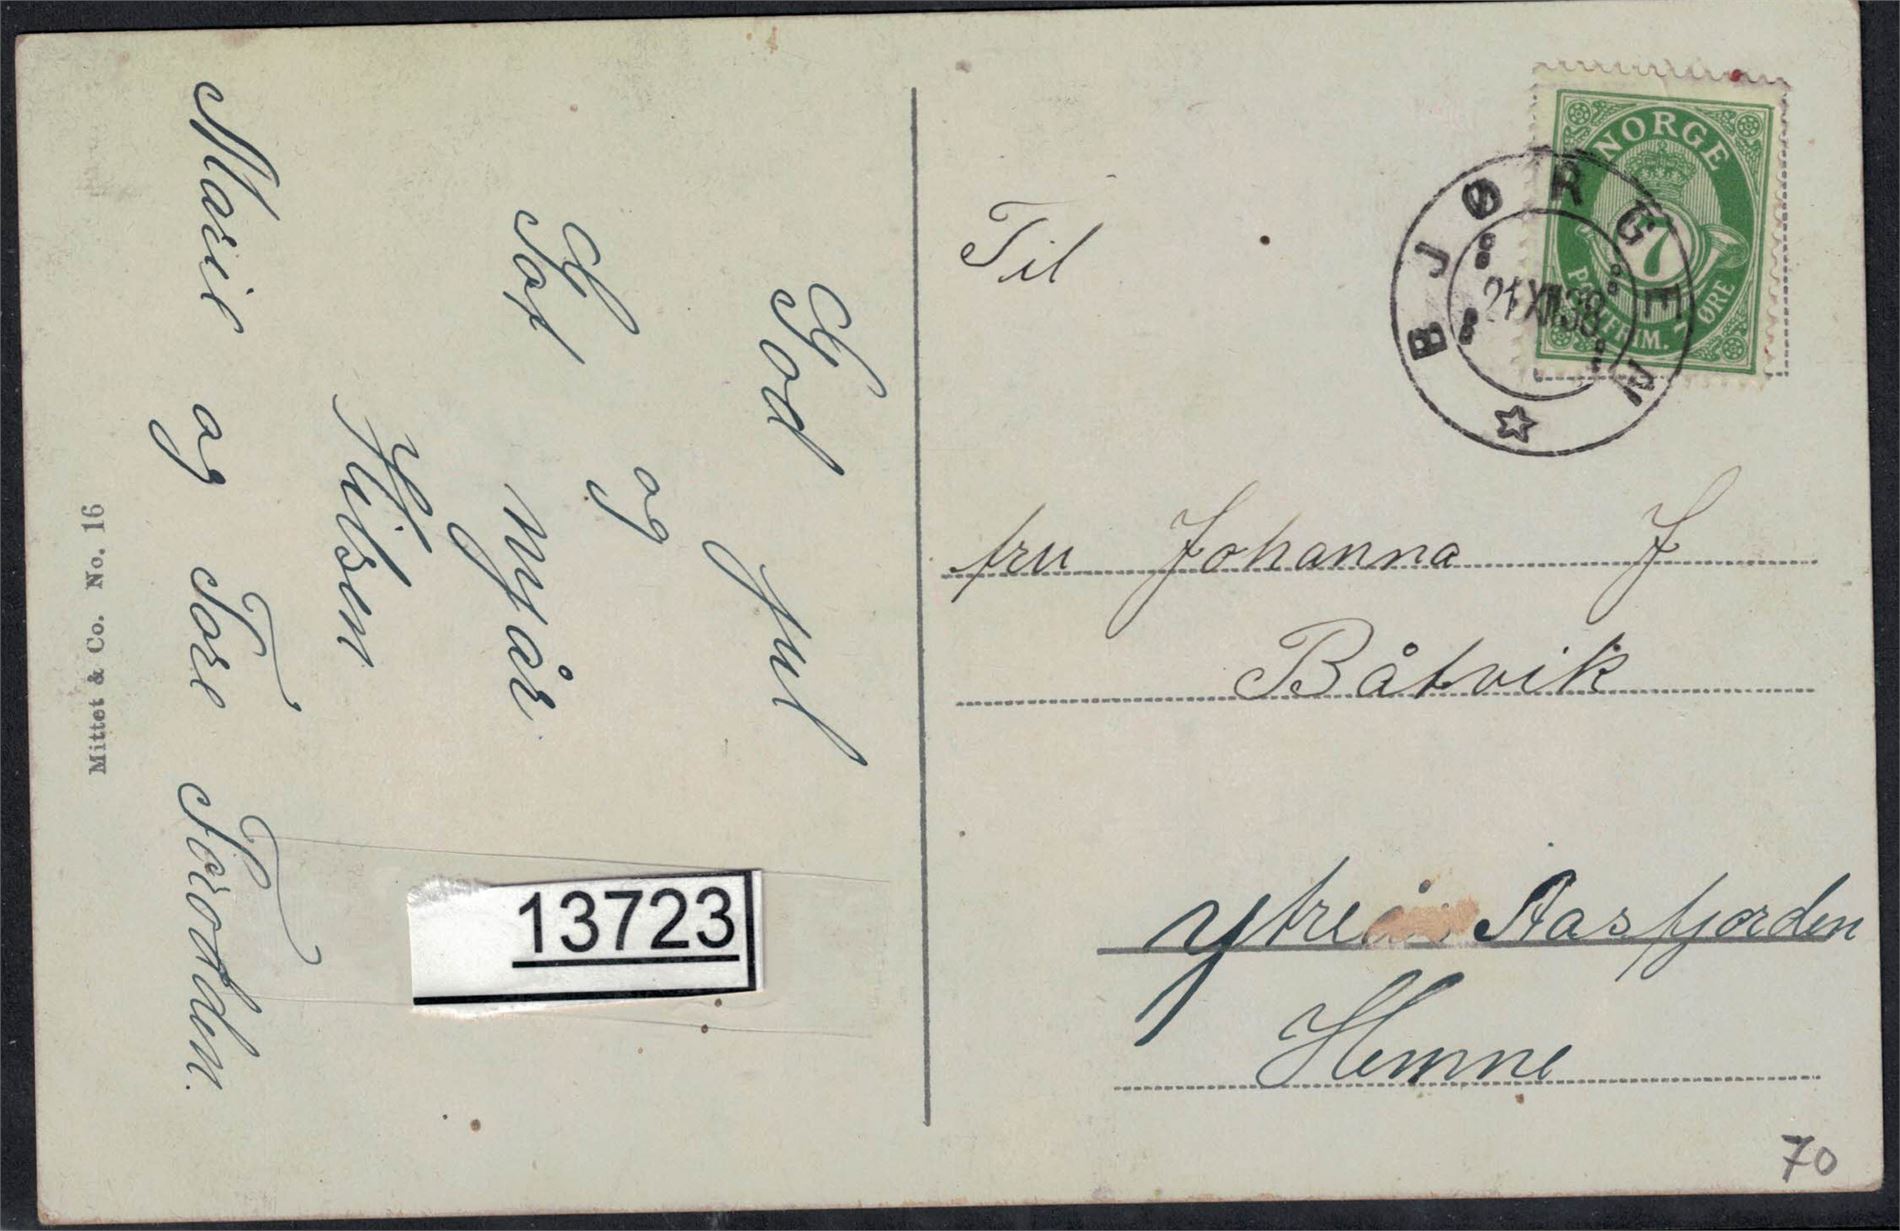 God Jul
og
Got nyår
Hilsen
Marie og Tore Torondin.
Mittet & Co. No. 16
13723
NORGE
7
POSTFRIM.
7 ØRE
BJØRGEN
21 XII 38
Til
fru Johanna J
Båtvik
Ytre Aasfjorden
Hemne
70